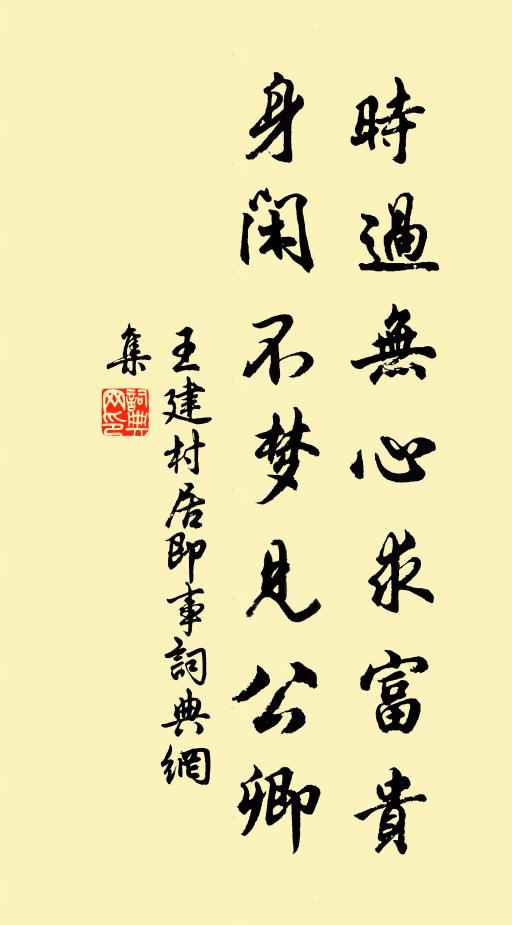 時過無心求富貴
身閑不梦見公卿
王建村居即事詞典網
集
詞典
网印